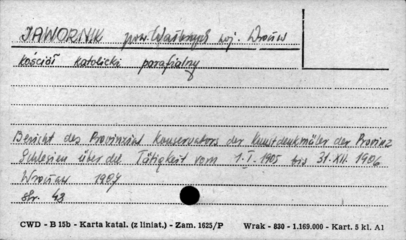 JAWORNIK pow. Wałbrzych woj. Wrocław
kościół katolicki parafialny
Bericht des Provinzial Konservators der Kunstdenkmäler der Provinz
Schlesien über die Tätigkeit vom 1.I.1905 bis 31.XII.1906
Wrocław 1907
str. 48
CWD - B 15b - Karta katal. (z liniat.) - Zam. 1625/P Wrak - 830 - 1.169.000 - Kart. 5 kl. A1